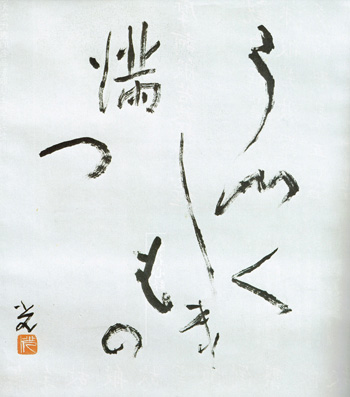 うつく
しき
もの
満つ